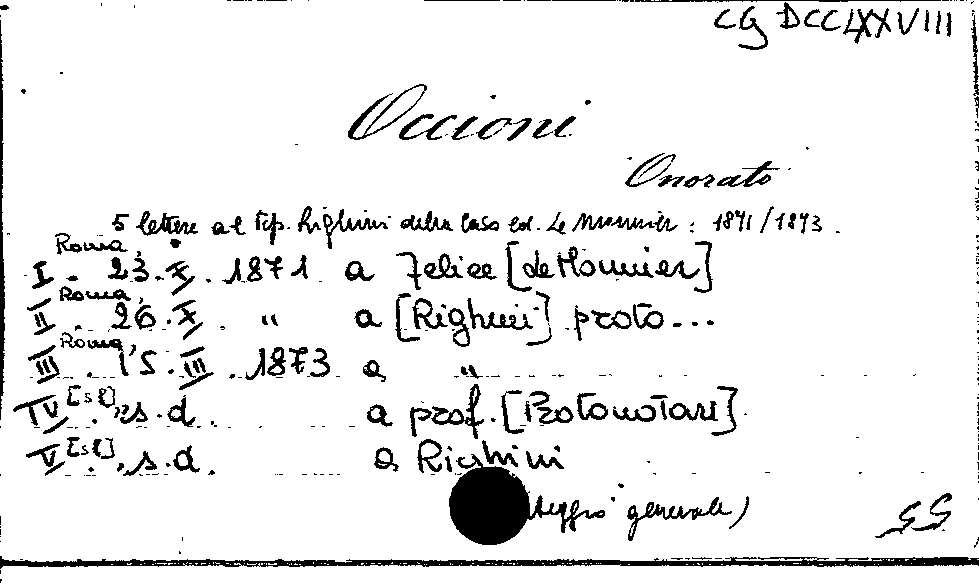 CG DCCLXXVIII
Occioni
Onorato
5 lettere al tip. Righini della Casa ed. Le Monnier : 1871/1873.
I. Roma, 23.X.1871 a Felice [le Monnier]
II. Roma, 26.X " a [Righini] proto...
III. Roma, 15.III.1873 a "
IV [s.l.], s.d. a prof. [Protonotari]
V [s.l.], s.d. a Righini
generale)
GG